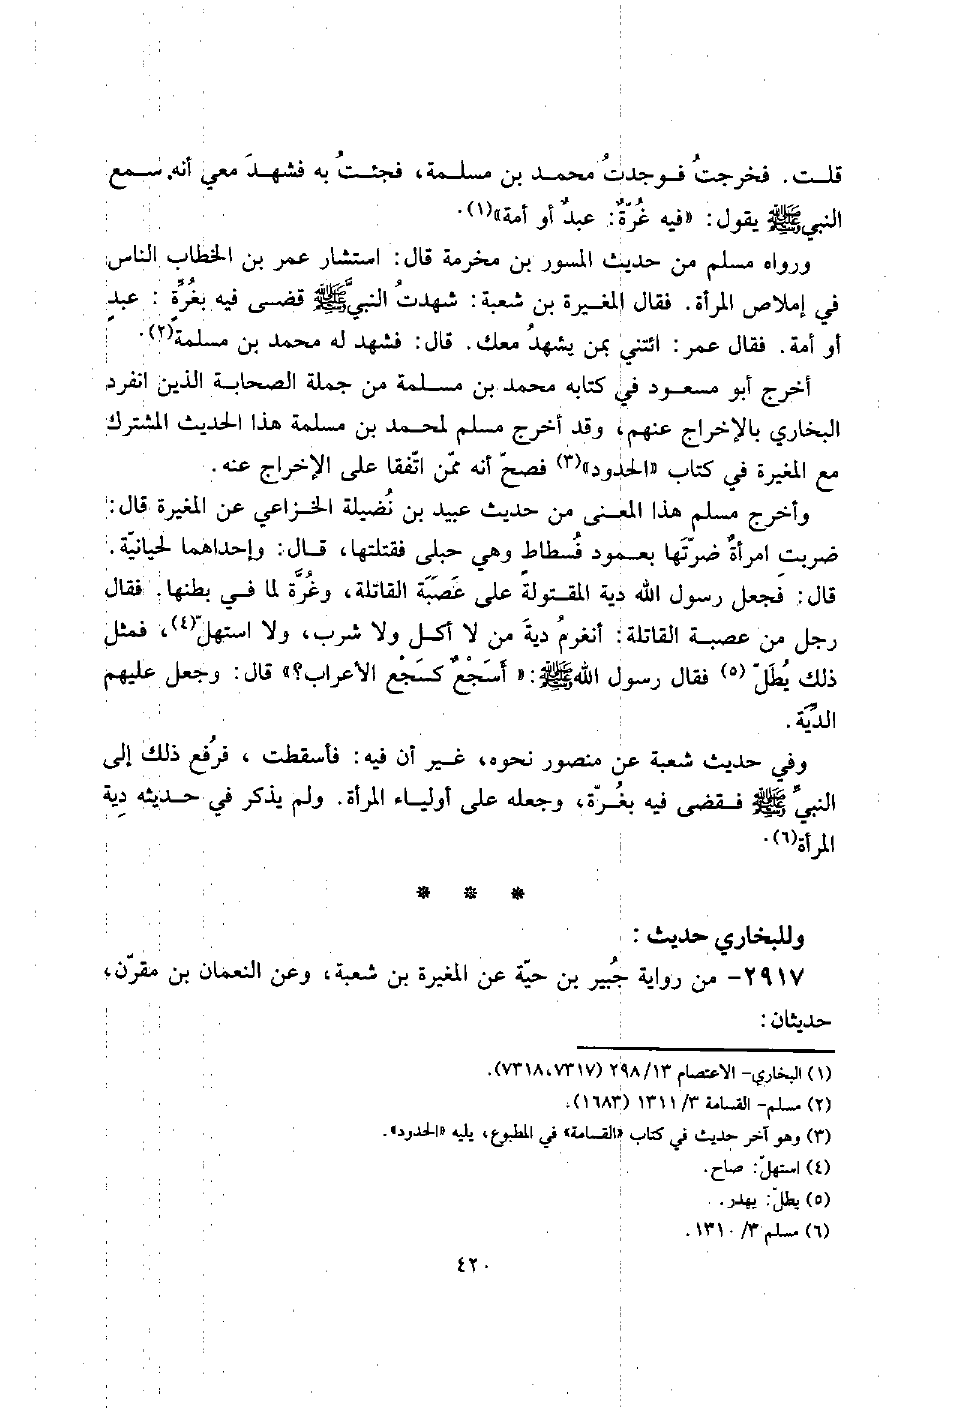 قلت. فخرجتُ فوجدتُ محمد بن مسلمة، فجئتُ به فشهدَ معي أنه سمع
النبي ﷺ يقول: «فيه غُرّةٌ: عبدٌ أو أمة»(١).
ورواه مسلم من حديث المسور بن مخرمة قال: استشار عمر بن الخطاب الناس
في إملاص المرأة. فقال المغيرة بن شعبة: شهدتُ النبيَّ ﷺ قضى فيه بغُرَّةٍ: عبدٍ
أو أمة. فقال عمر: ائتني بمن يشهدُ معك. قال: فشهد له محمد بن مسلمة(٢).
أخرج أبو مسعود في كتابه محمد بن مسلمة من جملة الصحابة الذين انفرد
البخاري بالإخراج عنهم، وقد أخرج مسلم لمحمد بن مسلمة هذا الحديث المشترك
مع المغيرة في كتاب «الحدود»(٣) فصحّ أنه ممّن اتّفقا على الإخراج عنه.
وأخرج مسلم هذا المعنى من حديث عبيد بن نُضيلة الخزاعي عن المغيرة قال:
ضربت امرأةٌ ضرّتَها بعمود فُسطاطٍ وهي حبلى فقتلتها، قال: وإحداهما لحيانيّة.
قال: فجعل رسول الله دية المقتولة على عَصَبَة القاتلة، وغُرَّة لما في بطنها. فقال
رجل من عصبة القاتلة: أنغرمُ ديةَ من لا أكل ولا شرب، ولا استهلّ(٤)، فمثل
ذلك يُطَلّ (٥) فقال رسول الله ﷺ: «أَسَجْعٌ كسَجْع الأعراب؟» قال: وجعل عليهم
الدِّيَة.
وفي حديث شعبة عن منصور نحوه، غير أن فيه: فأسقطت ، فرُفع ذلك إلى
النبيّ ﷺ فقضى فيه بغُرّة، وجعله على أولياء المرأة. ولم يذكر في حديثه دِية
المرأة(٦).
* * *
وللبخاري حديث :
٢٩١٧- من رواية جُبير بن حيّة عن المغيرة بن شعبة، وعن النعمان بن مقرّن،
حديثان:
(١) البخاري- الاعتصام ١٣/ ٢٩٨ (٧٣١٧، ٧٣١٨).
(٢) مسلم- القسامة ٣/ ١٣١١ (١٦٨٣).
(٣) وهو آخر حديث في كتاب «القسامة» في المطبوع، يليه «الحدود».
(٤) استهلّ: صاح.
(٥) يطلّ: يهدر.
(٦) مسلم ٣/ ١٣١٠.
٤٢٠